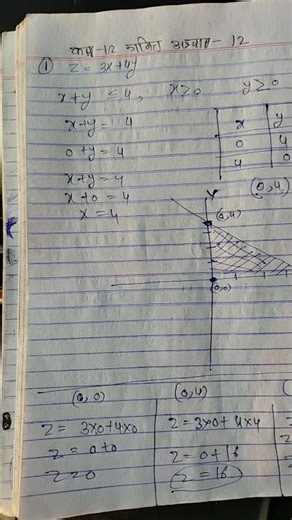 कक्षा-12 गणित अध्याय-12
① Z = 3x+4y
x+y ≤ 4, x≥0 y≥0
x+y = 4
0+y = 4
x+y = 4
x+0 = 4
x = 4
x y
0 4
4 0
(0,4)
Y
(0,4)
(0,0)
(0,0) (0,4)
Z = 3x0+4x0 Z = 3x0+4x4
Z = 0+0 Z = 0+16
Z = 0 Z = 16